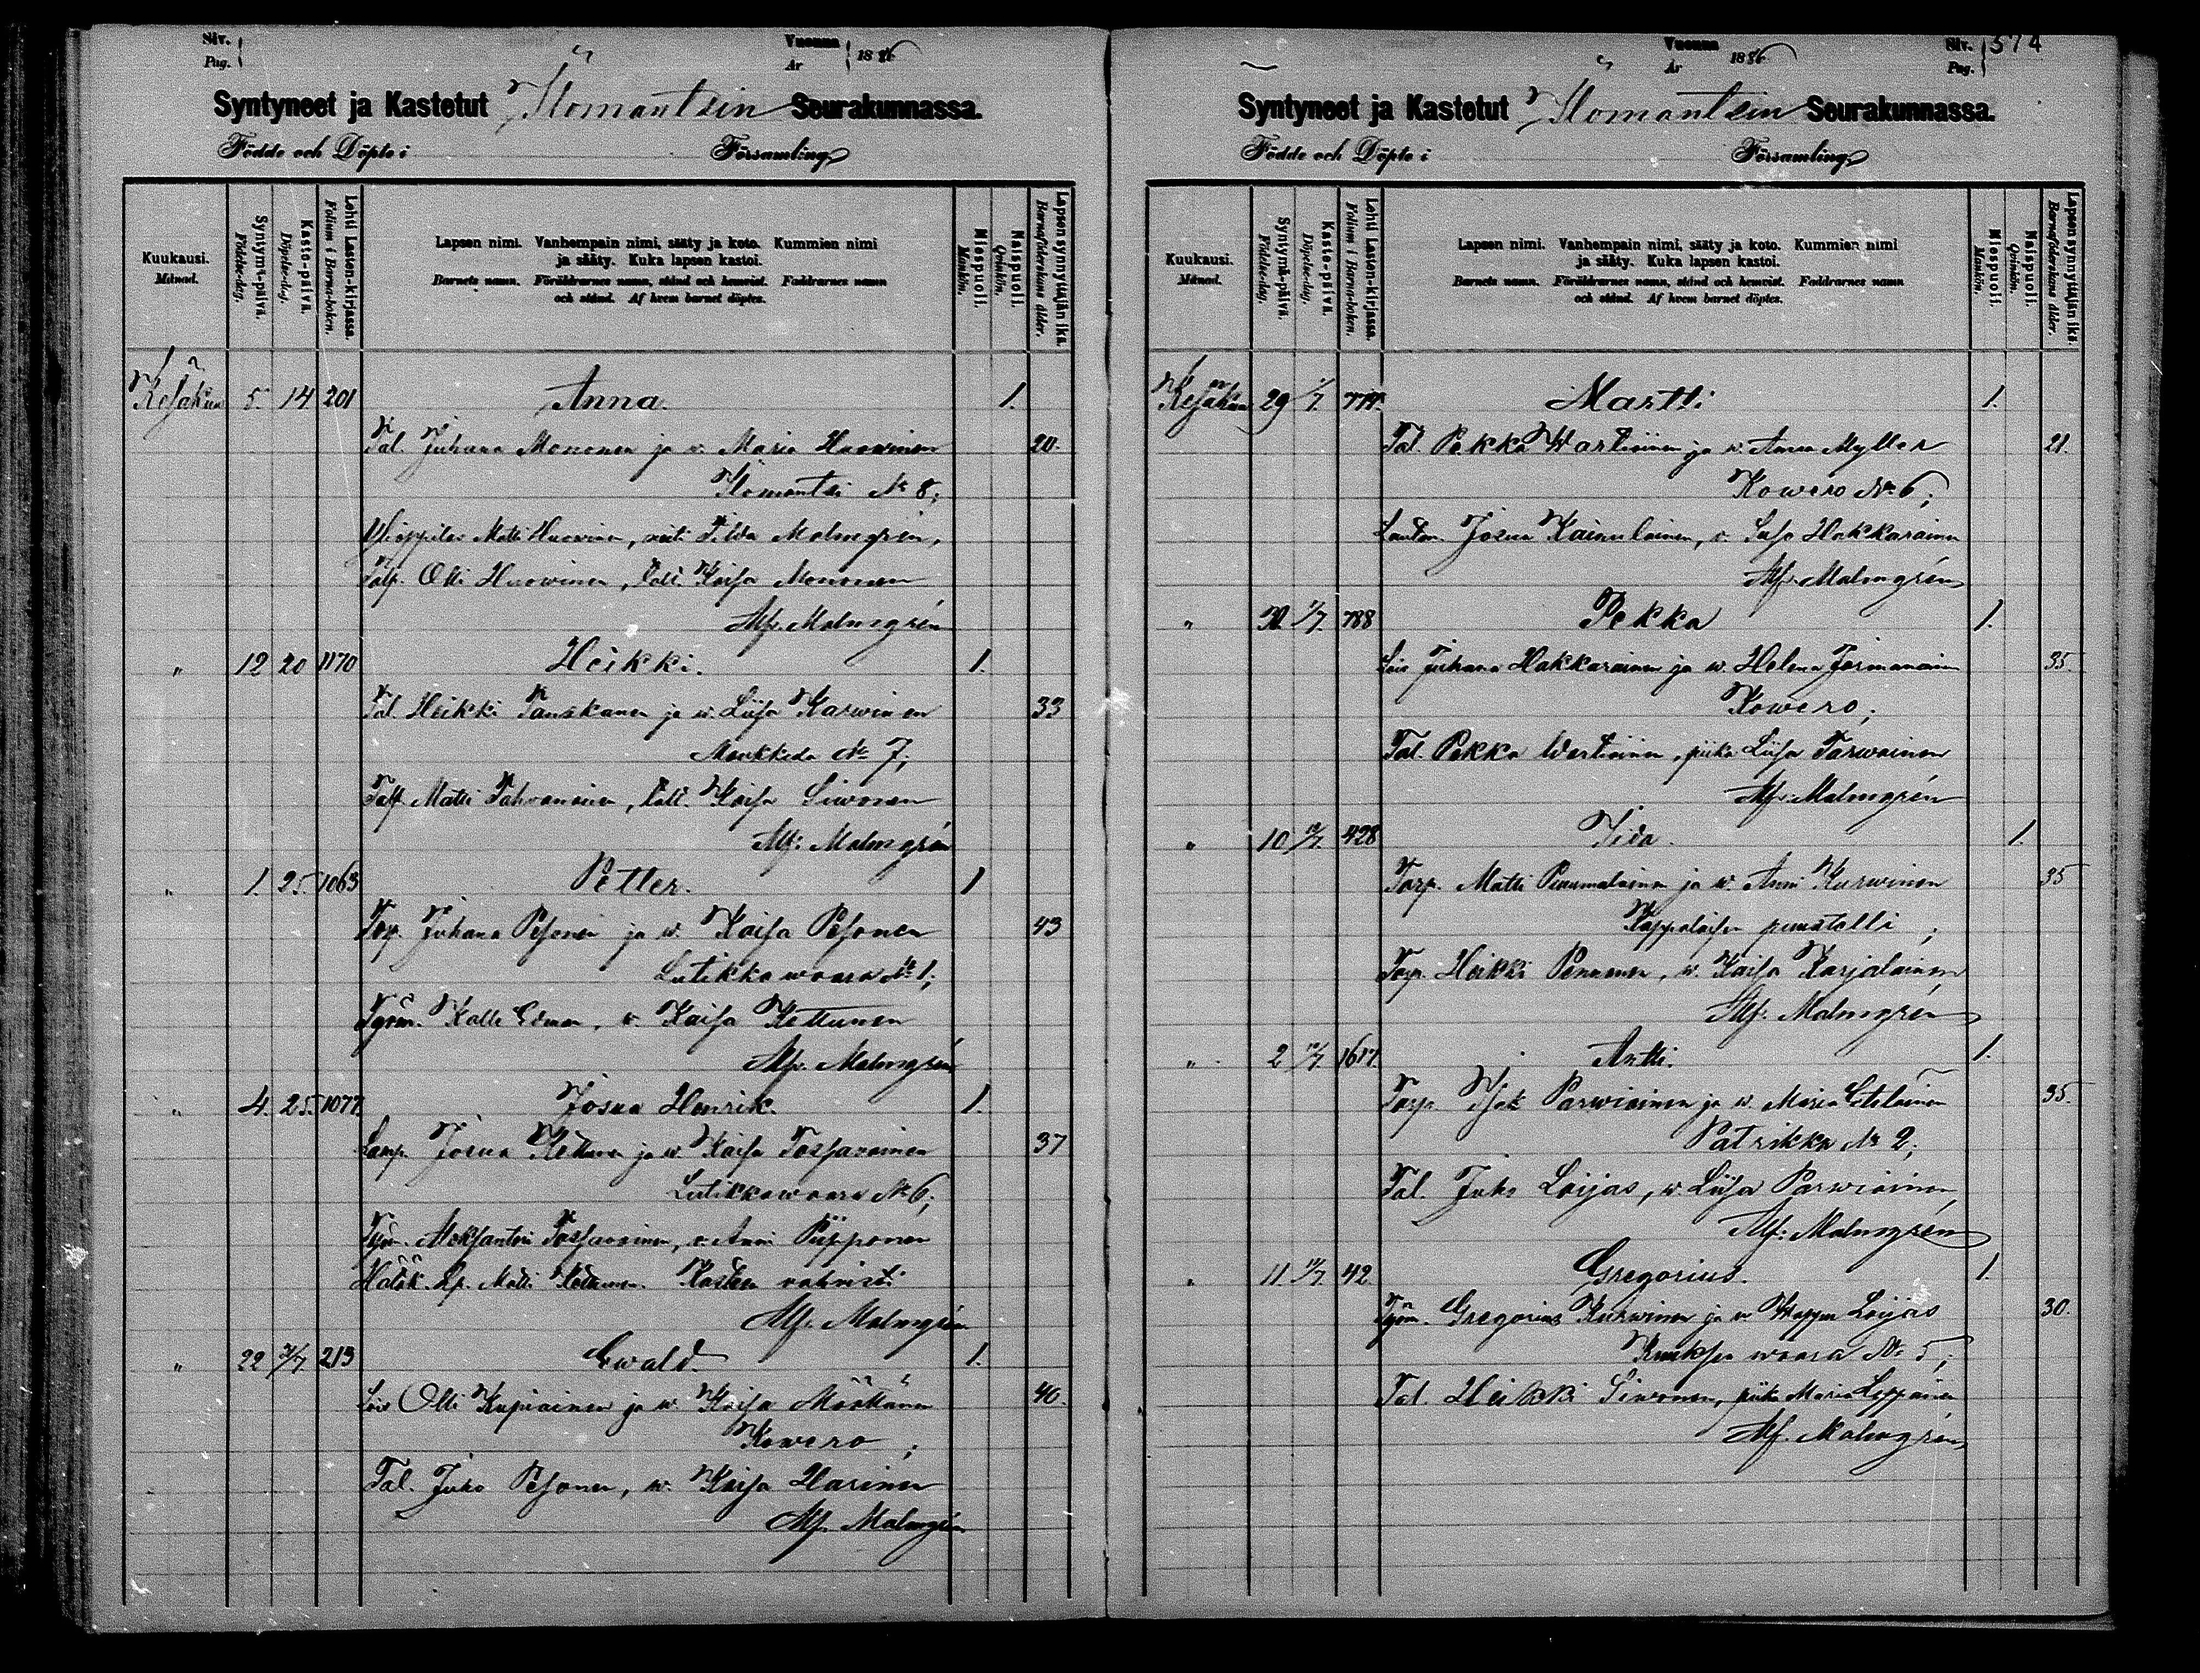 Siv. Pag.
Vuonna År 1886
Syntyneet ja Kastetut Ilomantsin Seurakunnassa.
Födde och Döpte i Församling
Kuukausi. Månad.
Syntymä-päivä. Födelse-dag.
Kasto-päivä. Döpelse-dag.
Lehti Lasten-kirjassa. Folium i Barna-boken.
Lapsen nimi. Vanhempain nimi, sääty ja koto. Kummien nimi
ja sääty. Kuka lapsen kastoi.
Barnets namn. Föräldrarnes namn, stånd och hemvist. Faddrarnes namn
och stånd. Af hvem barnet döptes.
Miespuoli. Mankön.
Naispuoli. Qvinkön.
Lapsen synnyttäjän ikä. Barnaföderskans ålder.
Kesäkuu 5. 14 201 Anna. 1.
Tal. Juhana Mononen ja v. Maria Huowinen 20.
Ilomantsi No 8;
Ylioppilas Matti Huowinen, neiti Tilda Malmgrén,
Talp. Olli Huowinen, talt. Kaisa Mononen
Alf. Malmgrén
" 12 20 1170 Heikki. 1.
Tal. Heikki Tanskanen ja w. Liisa Karwinen 33
Moukkeda No 7,
Talp. Matti Pahvanainen, talt. Kaisa Siwonen
Alf: Malmgrén
" 1. 25. 1063 Petter. 1
Torp. Juhana Pesonen ja w. Kaisa Pesonen 43
Lutikkawaara No 1;
Työm. Kalle Edman, v. Kaisa Kettunen
Alf. Malmgrén
" 4. 25. 1077 Josua Henrik. 1.
Lamp. Josua Kettunen ja w. Kaisa Tossavainen 37
Lutikkawaara No 6;
Työm. Aleksanteri Tossavainen, v. Anni Piipponen
Hätäk. Lp. Matti Kettunen. Kasteen vahvisti
Alf. Malmgrén
" 22 213 Ewald. 1.
Lois Olli Kupiainen ja w. Kaisa Määttänen 40.
Kowero;
Tal. Juho Pesonen, w. Kaisa Harinen
Alf. Malmgrén
Vuonna År 1886
Siv. Pag. 574
Syntyneet ja Kastetut Ilomantsin Seurakunnassa.
Födde och Döpte i Församling
Kuukausi. Månad.
Syntymä-päivä. Födelse-dag.
Kasto-päivä. Döpelse-dag.
Lehti Lasten-kirjassa. Folium i Barna-boken.
Lapsen nimi. Vanhempain nimi, sääty ja koto. Kummien nimi
ja sääty. Kuka lapsen kastoi.
Barnets namn. Föräldrarnes namn, stånd och hemvist. Faddrarnes namn
och stånd. Af hvem barnet döptes.
Miespuoli. Mankön.
Naispuoli. Qvinkön.
Lapsen synnyttäjän ikä. Barnaföderskans ålder.
Kesäkuu 29 1/7. Martti 1.
Tal. Pekka Wartiainen ja w. Anna Myller 21.
Kowero No 6;
Lautam. Josua Kainulainen, v. Sasa Hakkarainen
Alf. Malmgrén
" 30 1/7. 788 Pekka 1.
Lois Juhana Hakkarainen ja w. Helena Jormanainen 35
Kowero;
Tal. Pekka Wartiainen, piika Liisa Tarwainen
Alf. Malmgrén
" 10 428 Iida. 1.
Torp. Matti Piaumalainen ja w. Anni Kurwinen 35
Kuppalaisen puustelli;
Torp. Heikki Pennanen, w. Kaisa Karjalainen,
Alf. Malmgrén
" 2 1617. Antti. 1.
Torp. Isak Parwiainen ja w. Maria Eteläinen 35.
Patrikka No 2;
Tal. Juho Loijas, w. Liisa Parwiainen
Alf: Malmgrén
" 11. 42. Gregorius. 1.
Työm. Gregorius Kurwinen ja w. Wappu Loijas 30.
Kuuksen waara No 5;
Tal. Heikki Siwonen, piika Maria Leppänen
Alf. Malmgrén